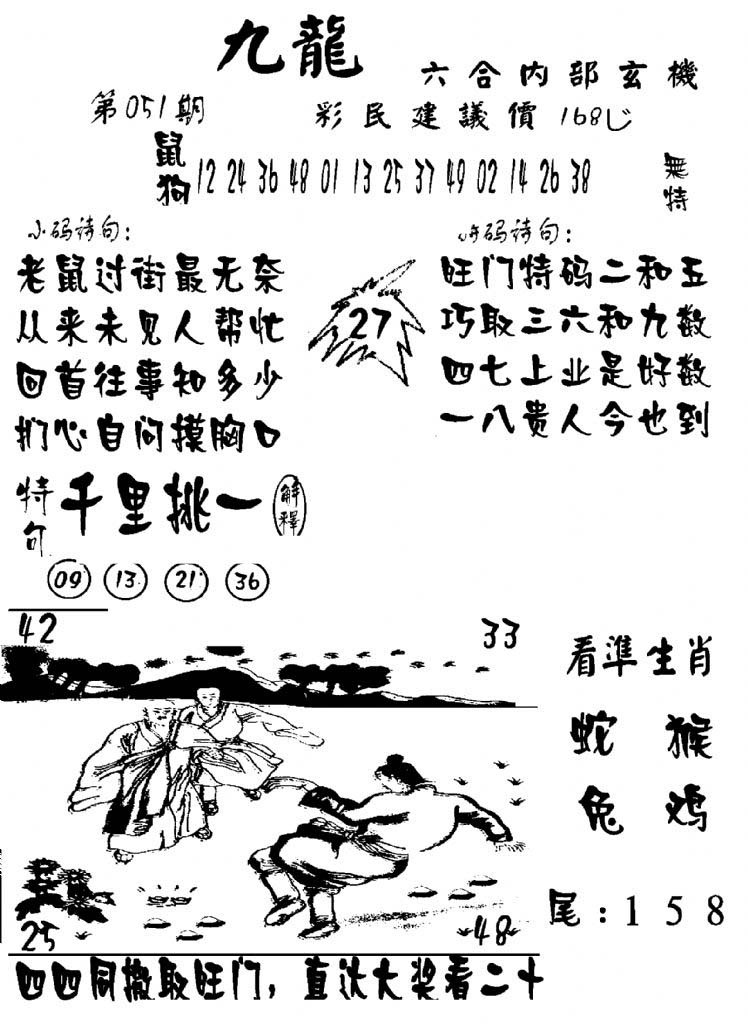 九龍
六合内部玄機
第051期
彩民建議價168
鼠狗
12 24 36 48 01 13 25 37 49 02 14 26 38
無特
小码诗句:
老鼠过街最无奈
从来未见人帮忙
回首往事知多少
扪心自问摸胸口
码诗句:
旺门特码二和五
巧取三六和九数
四七上业是好数
一八贵人今也到
27
特句
千里挑一
解釋
09 13 21 36
42
33
25
48
看準生肖
蛇 猴
兔 鸡
尾:1 5 8
四四同撤取旺门,直达大奖看二十